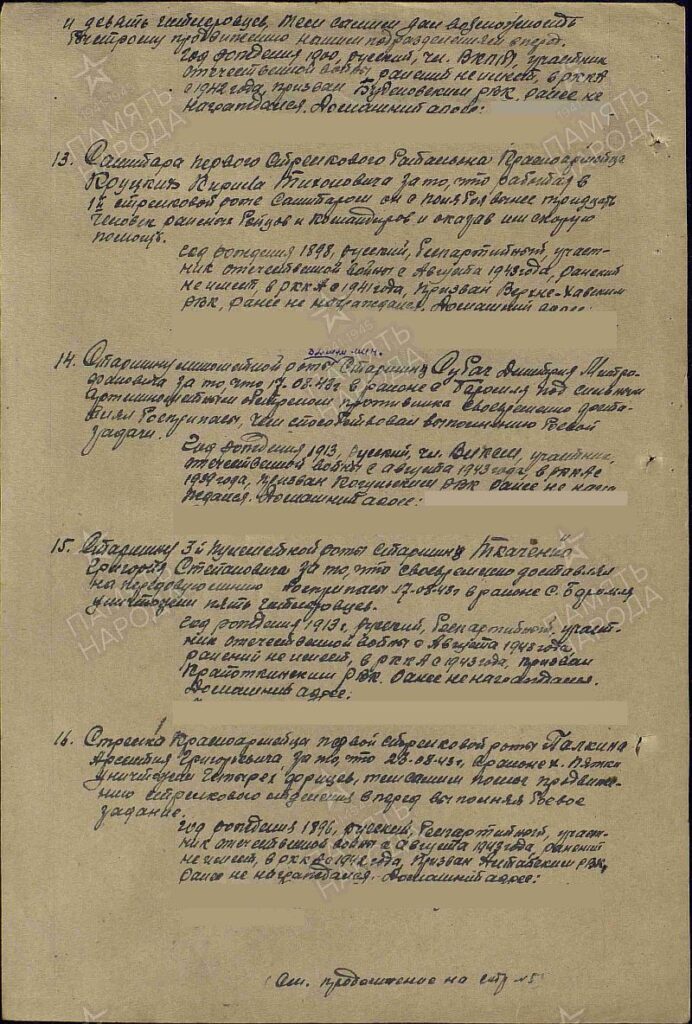 и девять гитлеровцев, тем самым дал возможность
быстрому продвижению нашим подразделениям вперед.
Год рождения 1900, русский, чл. ВКП(б), участник
отечественной войны, ранений не имеет, в РККА
с 1942 года, призван Буденовским РВК, ранее не
награждался. Домашний адрес:
13. Санитара первого стрелкового батальона Красноармейца
Круцких Кирилла Тихоновича за то, что работая в
1й стрелковой роте санитаром он с поля боя вынес тридцать
человек раненых бойцов и командиров и оказав им скорую
помощь.
год рождения 1898, русский, беспартийный, участ-
ник отечественной войны с Августа 1943 года, ранений
не имеет, в РККА с 1941 года, Призван Верхне-Хавским
РВК, ранее не награждался. Домашний адрес:
14. Старшину минометной роты Старшину Дмитрия Митро-
фановича за то, что 17.08.43г в районе с под сильным
Артиллерийским обстрелом противника своевременно доста-
влял боеприпасы, чем способствовал выполнению боевой
задачи.
Год рождения 1913, русский, чл. участник
отечественной войны с августа 1943 года, в РККА с
1939 года, призван РВК Ранее не наг
ждался. Домашний адрес:
15. Старшину 3й пулеметной роты старшину Ткаченко
Григория Степановича за то, что своевременно доставлял
на передовую линию боеприпасы 17.08.43г в районе с.
уничтожил пять гитлеровцев.
год рождения 1913г, русский, беспартийный, участ-
ник отечественной войны с Августа 1943 года,
ранений не имеет, в РККА с 1943 года, призван
Крапоткинским РВК. Ранее не награждался.
Домашний адрес:
16. Стрелка Красноармейца первой стрелковой роты Палкина
Арсентия Григорьевича за то, что 23.08.43г, в районе х. Пятки
уничтожил четырех фрицев, тем самым помог продвиже-
нию стрелкового отделения вперед выполняя боевое
задание.
Год рождения 1896, русский, беспартийный, участ-
ник отечественной войны с августа 1943 года, ранений
не имеет, в РККА с 1942 года, Призван РВК,
Ранее не награждался. Домашний адрес:
(См. продолжение на стр №5)
ПАМЯТЬ НАРОДА